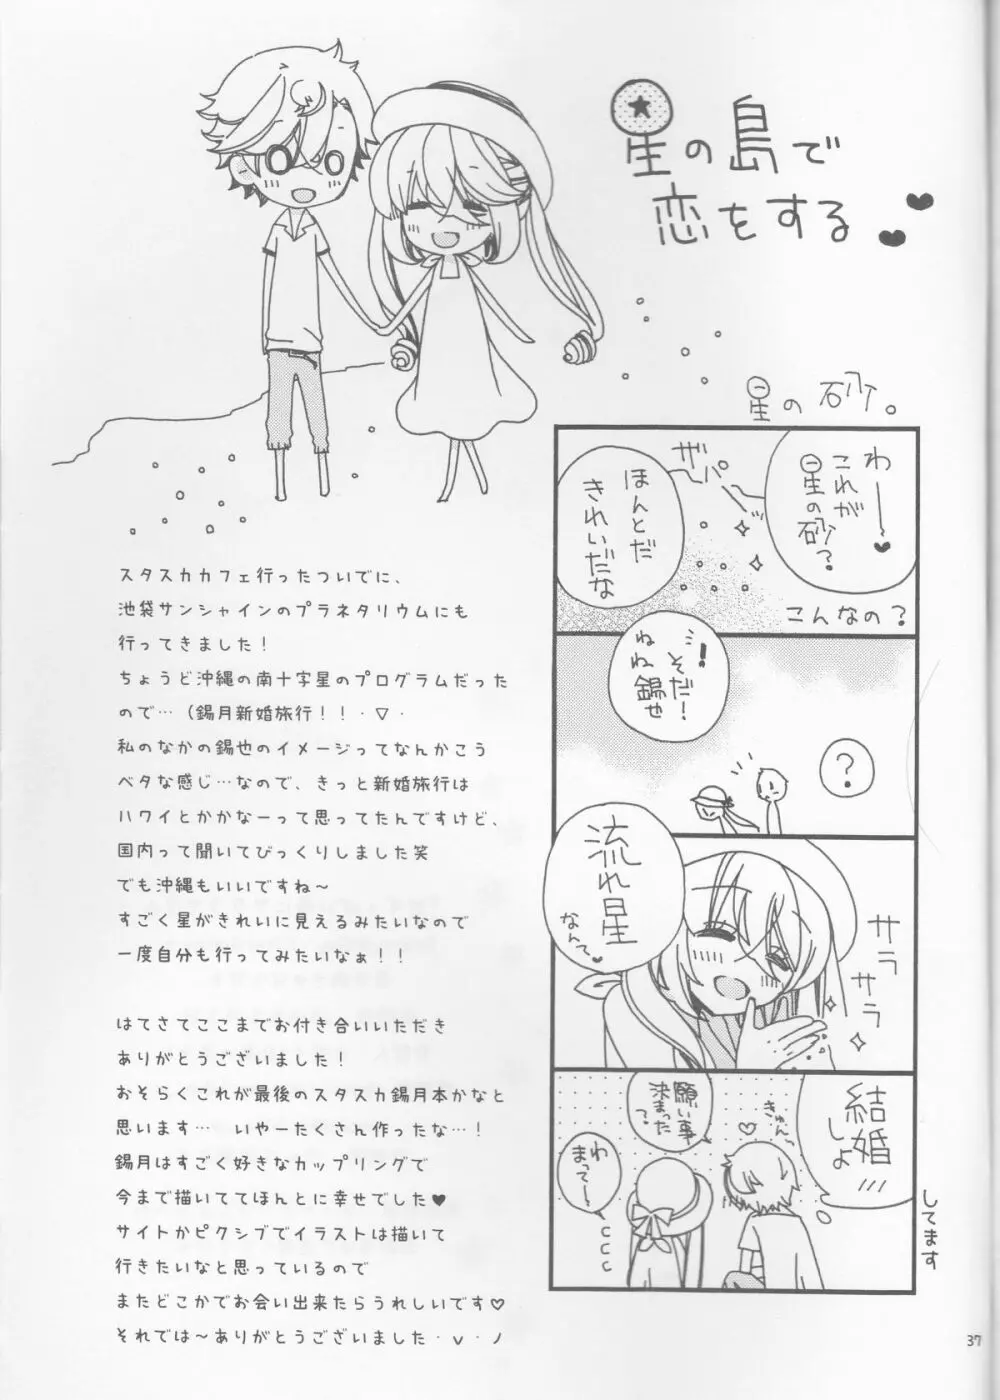 星の島で
恋をする
星の砂。
わーー♥
これが
星の砂？
ザパーッ
ほんとだ
きれいだな
こんなの？
！そだ！
ねね錫也
？
流れ星
なんて♥
サラ
サラ
結婚
しよ
きゅん
願い事
決まった
？
わ
まってー
してます
スタスカカフェ行ったついでに、
池袋サンシャインのプラネタリウムにも
行ってきました！
ちょうど沖縄の南十字星のプログラムだった
ので…（錫月新婚旅行！！・▽・
私のなかの錫也のイメージってなんかこう
ベタな感じ…なので、きっと新婚旅行は
ハワイとかかなーって思ってたんですけど、
国内って聞いてびっくりしました笑
でも沖縄もいいですね～
すごく星がきれいに見えるみたいなので
一度自分も行ってみたいなぁ！！
はてさてここまでお付き合いいただき
ありがとうございました！
おそらくこれが最後のスタスカ錫月本かなと
思います… いやーたくさん作ったな…！
錫月はすごく好きなカップリングで
今まで描いててほんとに幸せでした♥
サイトかピクシブでイラストは描いて
行きたいなと思っているので
またどこかでお会い出来たらうれしいです♡
それでは～ありがとうございました・ｖ・ノ
37